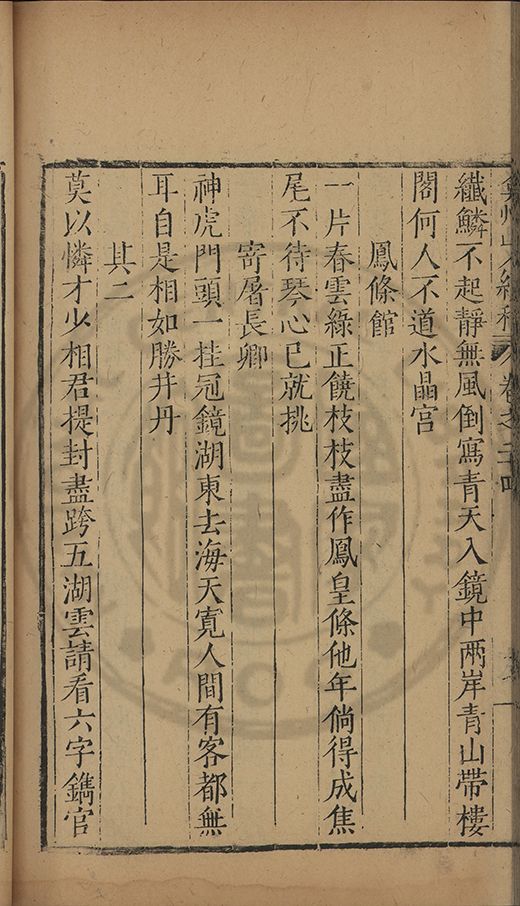 纖鱗不起靜無風倒寫青天入鏡中兩岸青山帶樓
閣何人不道水晶宮
鳳條館
一片春雲綠正饒枝枝盡作鳳皇條他年倘得成焦
尾不待琴心已就挑
寄屠長卿
神虎門頭一挂冠鏡湖東去海天寬人間有客都無
耳自是相如勝井丹
其二
莫以憐才少相君提封盡跨五湖雲請看六字鐫官